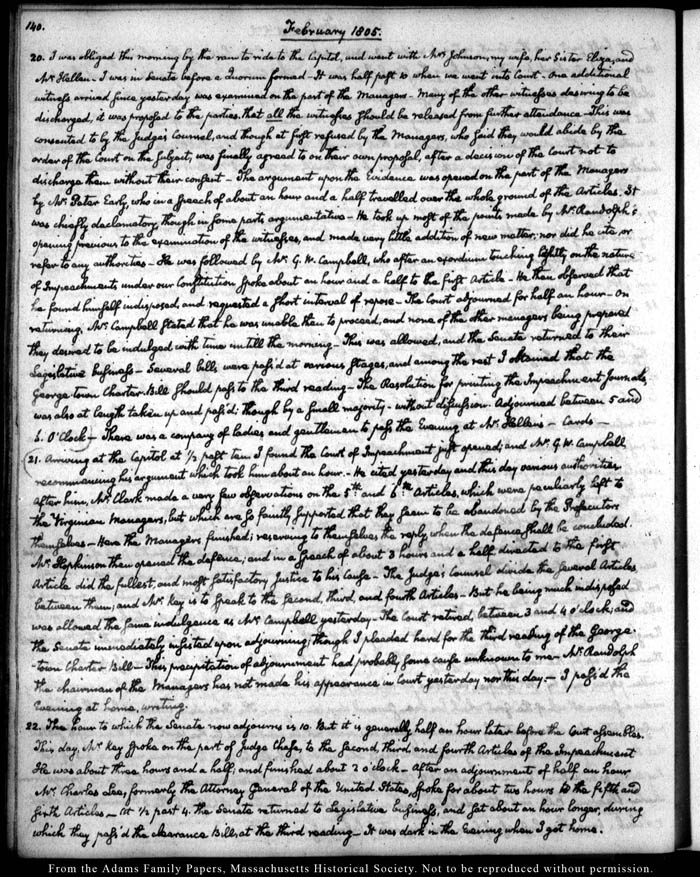 140.
February 1805.
20. I was obliged this morning by the rain to ride to the Capitol, and went with Mrs Johnson, my wife, her Sister Eliza, and
Mr Hellen - I was in Senate before a Quorum formed - It was half past 10 when we went into Court - One additional
witness arrived since yesterday was examined on the part of the Managers - Many of the other witnesses desiring to be
discharged, it was proposed to the parties that all the witnesses should be released from further attendance - This was
consented to by the Judge's Counsel, and though at first refused by the Managers, who said they would abide by the
order of the Court on the subject, was finally agreed to on their own proposal, after a decision of the Court not to
discharge them without their consent - The argument upon the Evidence was opened on the part of the Managers
by Mr. Peter Early, who in a speech of about an hour and a half travelled over the whole ground of the Articles. It
was chiefly declamatory, though in some parts argumentative - He took up most of the points made by Mr. Randolph's
opening previous to the examination of the witnesses, and made very little addition of new matter; nor did he cite, or
refer to any authorities - He was followed by Mr. G. W. Campbell, who after an exordium touching lightly on the nature
of Impeachments under our Constitution spoke about an hour and a half to the first Article - He then observed that
he found himself indisposed, and requested a short interval of repose - The Court adjourned for half an hour - On
returning, Mr. Campbell stated that he was unable then to proceed, and none of the other managers being prepared
they desired to be indulged with time untill the morning - This was allowed, and the Senate returned to their
Legislative business - Several bills were pass'd at various stages, and among the rest I obtained that the
George-town Charter-Bill should pass to the third reading - The Resolution for printing the Impeachment Journals,
was also at length taken up and pass'd; though by a small majority - without discussion. Adjourned between 5 and
6. O'Clock - There was a company of ladies and gentlemen to pass the Evening at Mr. Hellen's - Cards -
21. Arriving at the Capitol at 1/2 past ten I found the Court of Impeachment just opened; and Mr. G. W. Campbell
recommencing his argument which took him about an hour. - He cited yesterday and this day various authorities
after him, Mr. Clark made a very few observations on the 5th. and 6th. Articles, which were peculiarly left to
the Virginian Managers, but which are so faintly supported that they seem to be abandoned by the Prosecutors
themselves - Here the Managers finished; reserving to themselves the reply when the defence shall be concluded.
Mr. Hopkinson then opened the defence; and in a speech of about 3 hours and a half directed to the first
Article did the fullest, and most satisfactory Justice to his cause - The Judge's Counsel divide the several Articles
between them; and Mr. Key is to speak to the second, third, and fourth Articles - But he being much indisposed
was allowed the same indulgence as Mr. Campbell yesterday - The Court retired, between 3 and 4 o'clock; and
the Senate immediately insisted upon adjourning; though I pleaded hard for the third reading of the George-
-town Charter Bill - This precipitation of adjournment had probably some cause unknown to me - Mr. Randolph
the chairman of the Managers has not made his appearance in Court yesterday nor this day - I pass'd the
Evening at home, writing.
22. The hour to which the Senate now adjourns is 10. But it is generally half an hour later before the Court assembles.
This day, Mr. Key spoke on the part of Judge Chase, to the second, third, and fourth Articles of the Impeachment
He was about three hours and a half; and finished about 2 o'clock - After an adjournment of half an hour
Mr. Charles Lee, formerly the Attorney General of the United States, spoke for about two hours to the fifth, and
sixth Articles - At 1/2 past 4. the Senate returned to Legislative business, and sat about an hour longer, during
which they pass'd the clearance Bill, at the third reading - It was dark in the Evening when I got home.
From the Adams Family Papers, Massachusetts Historical Society. Not to be reproduced without permission.